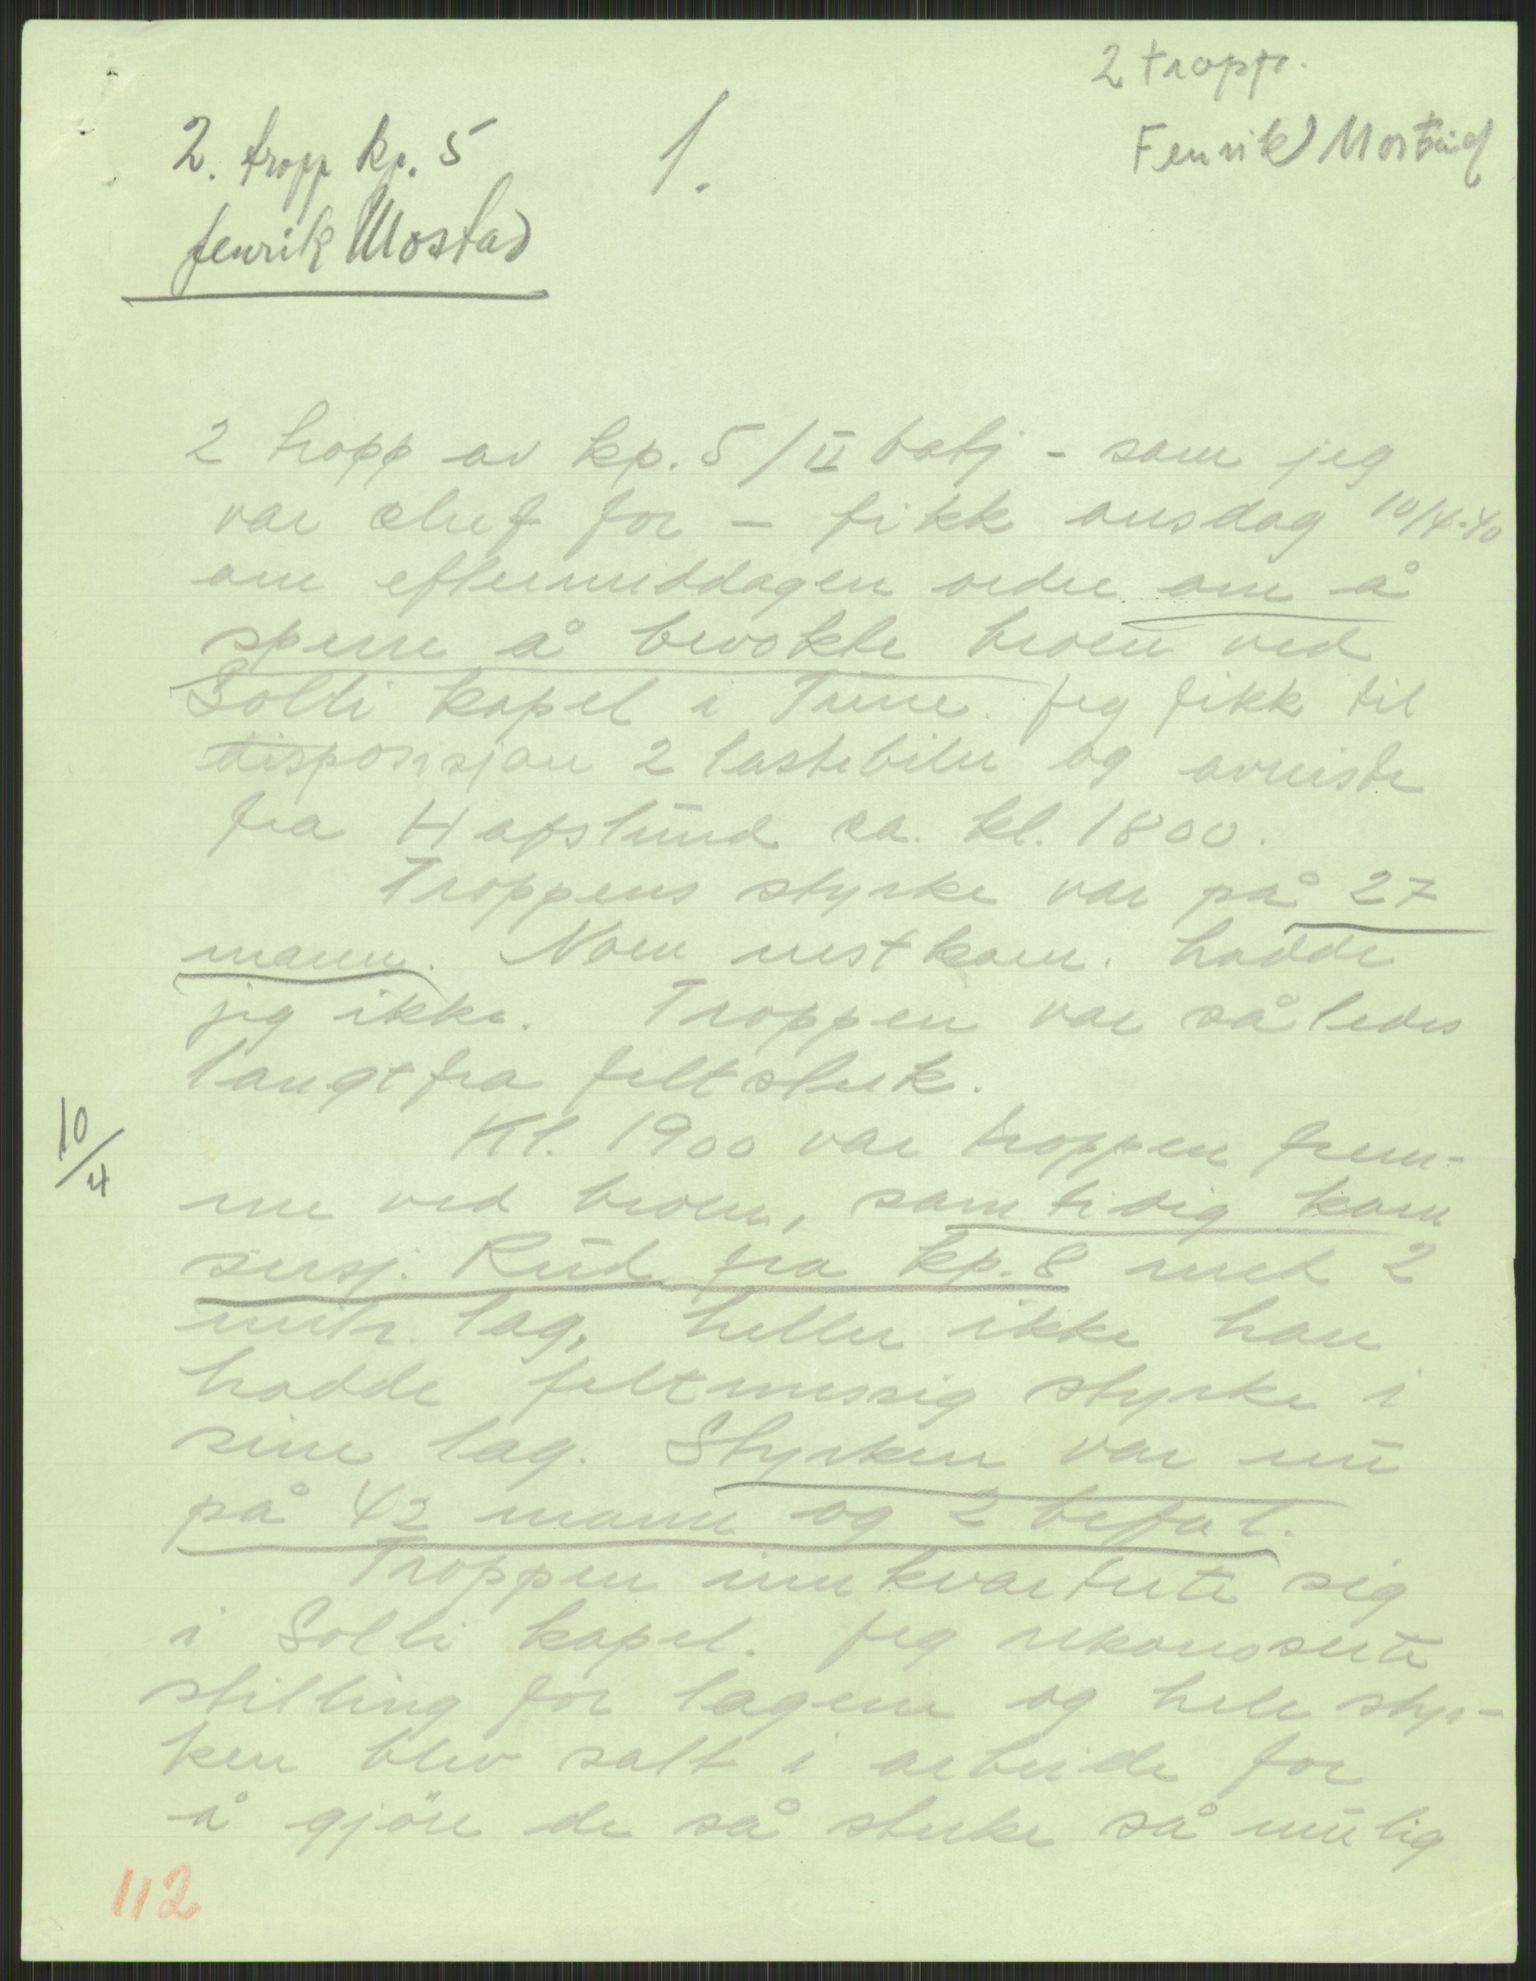 2 tropp.
Fenrik Mostad
2. tropp kp. 5
1.
fenrik Mostad
2 tropp av kp. 5 / II batj - som jeg
var chef for - fikk onsdag 10/4-40
om eftermiddagen ordre om å
sperre å bevokte broen ved
Solli kapel i Tune. Jeg fikk til
disposisjon 2 lastebiler og avreiste
fra Hafslund ca. kl. 1800.
Troppens styrke var på 27
mann. Noen nestkom. hadde
jeg ikke. Troppen var således
langt fra feltsterk.
10/4
Kl. 1900 var troppen frem-
me ved broen, samtidig kom
sersj. Rud fra kp. 8 med 2
mitr. lag, heller ikke han
hadde feltmessig styrke i
sine lag. Styrken var nu
på 42 mann og 2 befal.
Troppen innkvarterte sig
i Solli kapel. Jeg rekonoserte
stilling for lagene og hele styr-
ken blev satt i arbeide for
å gjöre de så sterke så mulig
112